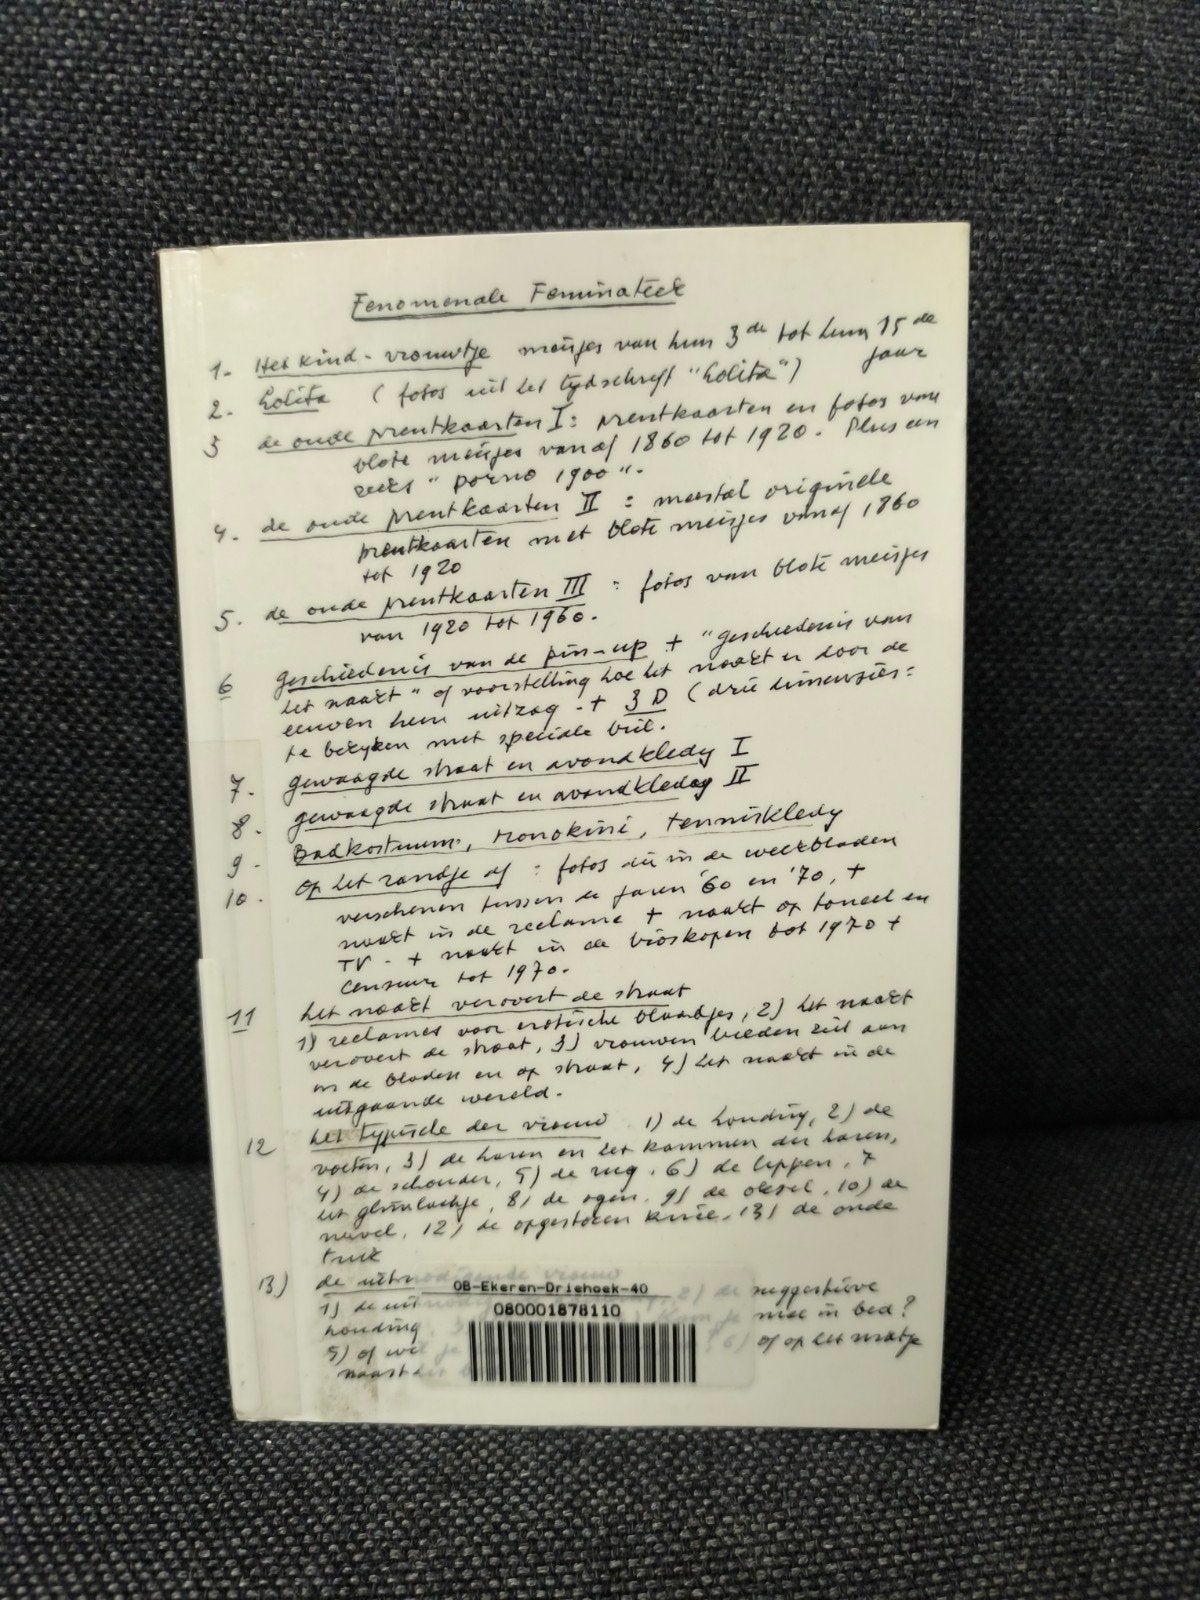 Fenomenale Feminateek
1. Het kind-vrouwtje meisjes van hun 3de tot hun 15de jaar
2. Lolita (fotos uit het tijdschrift "Lolita")
3 de oude prentkaarten I: prentkaarten en fotos van
blote meisjes vanaf 1860 tot 1920. Plus een
reeks "porno 1900".
4. de oude prentkaarten II: meestal originele
prentkaarten met blote meisjes vanaf 1860
tot 1920
5. de oude prentkaarten III: fotos van blote meisjes
van 1920 tot 1960.
6 geschiedenis van de pin-up + "geschiedenis van
het naakt" of voorstelling hoe het naakt er door de
eeuwen heen uitzag - + 3 D (drie dimensies:
te bekijken met speciale bril.
7. gewaagde straat en avondkledij I
8. gewaagde straat en avondkledij II
9. Badkostuum, monokini, tenniskledij
10. Op het randje af: fotos die in de weekbladen
verschenen tussen de jaren '60 en '70, +
naakt in de reclame + naakt op toneel en
TV - + naakt in de bioskopen tot 1970 +
censuur tot 1970.
11 het naakt verovert de straat
1) reclames voor erotische blaadjes, 2) het naakt
verovert de straat, 3) vrouwen bieden zich aan
in de bladen en op straat, 4) het naakt in de
uitgaande wereld.
12 het typische der vrouw 1) de houding, 2) de
voeten, 3) de haren en het kammen der haren,
4) de schouder, 5) de rug, 6) de lippen, 7
het glimlachje, 8) de ogen, 9) de oksel, 10) de
navel, 12) de opgestoken knie, 13) de oude
truk
13) de uitnodigende vrouw
1) de 2) de suggestieve
houding mee in bed?
5) of wil je 6) of op het matje
naast het
OB-Ekeren-Driehoek-40
080001878110